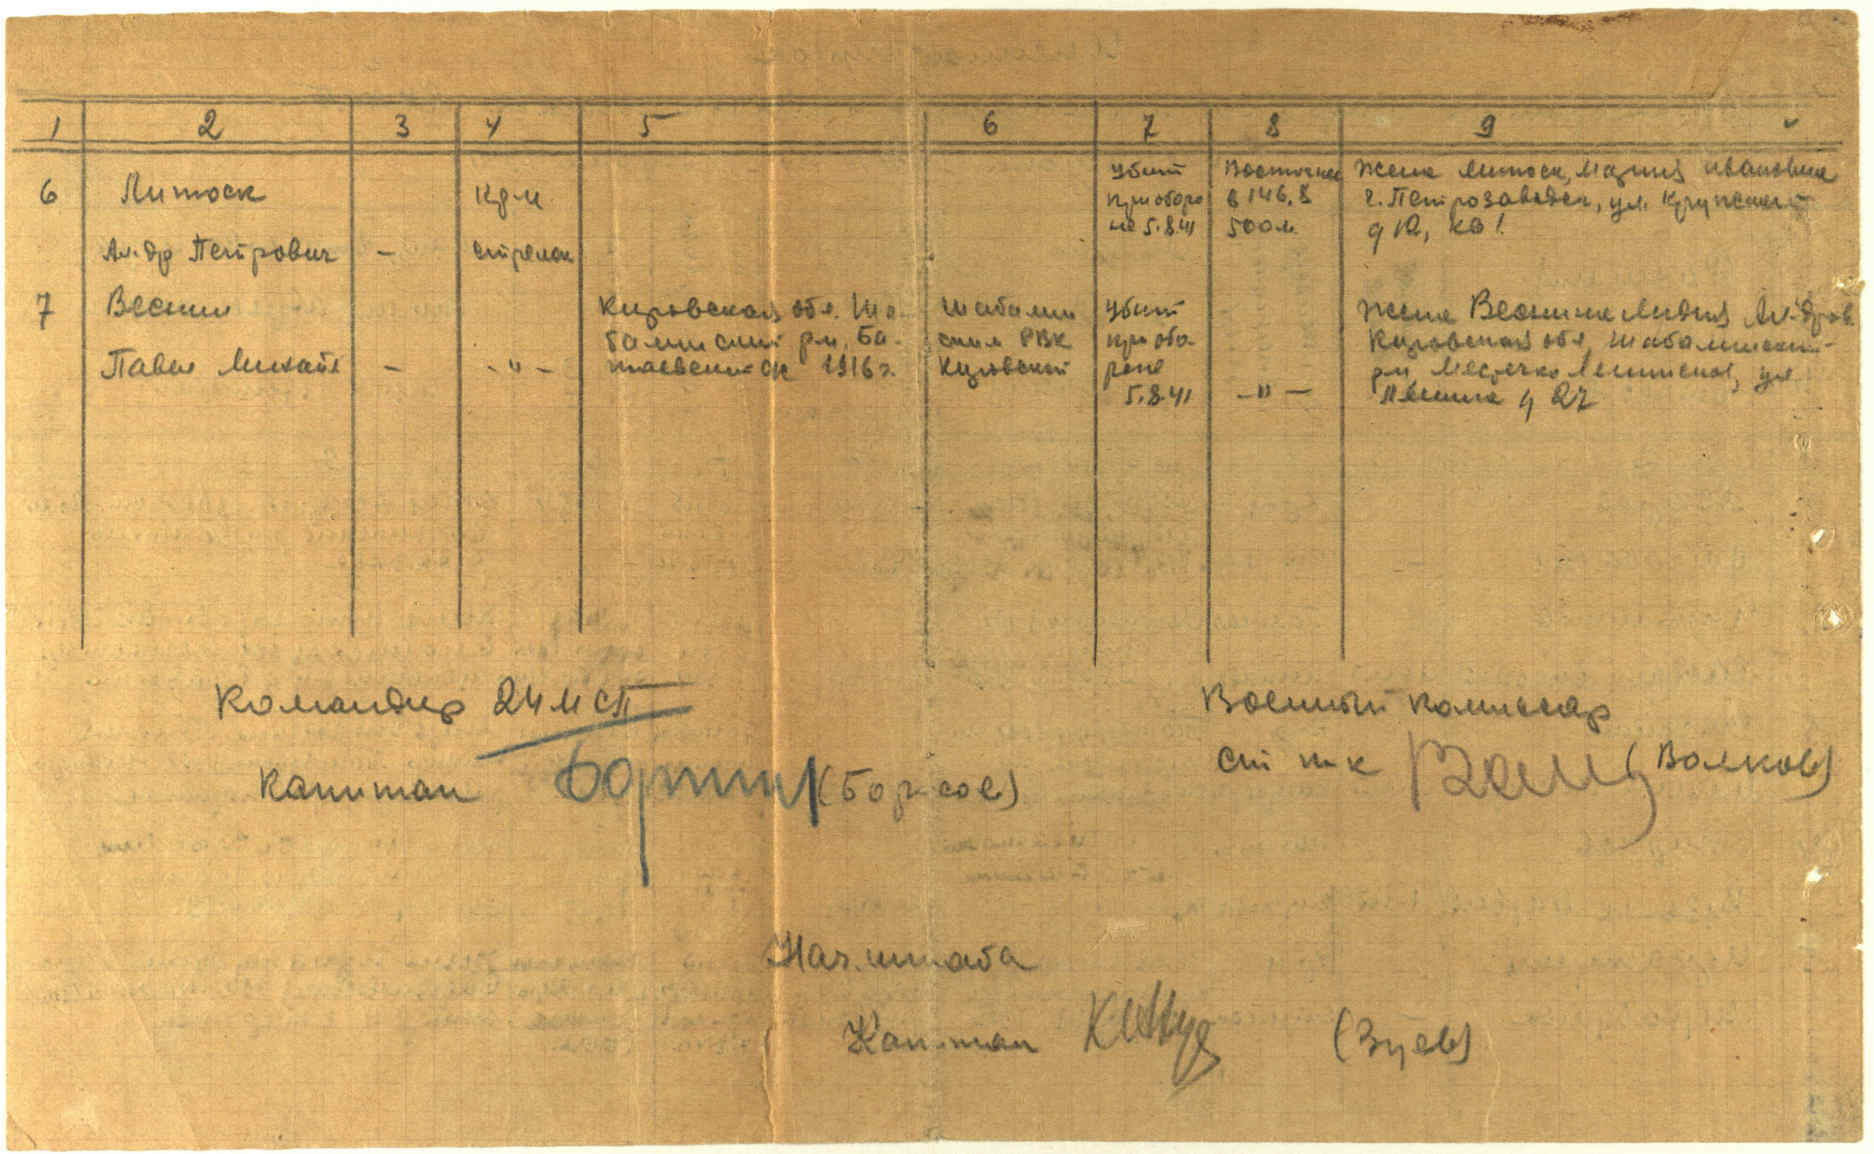 1 2 3 4 5 6 7 8 9
6 Литоск
Ал-др Петрович —
кр-м
стрелок
убит
при оборо
не 5.8.41
Восточнее
в 146,8
500 м.
Жена Литоск, Мария Ивановна
г. Петрозаводск, ул. Крупской
д 10, кв 1
7 Веснин
Павел Михайл — -"-
Кировская обл. Ша-
балинский р-н, Ба-
1916 г.
Шабалин
ским РВК
Кировской
убит
при обо-
роне
5.8.41
—"—
Жена Веснина Лидия Ал-дров
Кировская обл, Шабалинский
р-н, Местечко Ленинское, ул
Ленина д 27
Командир 24 МСП
Капитан (Борисов)
Военный Комиссар
ст п-к (Волков)
Нач. штаба
Капитан (Зуев)